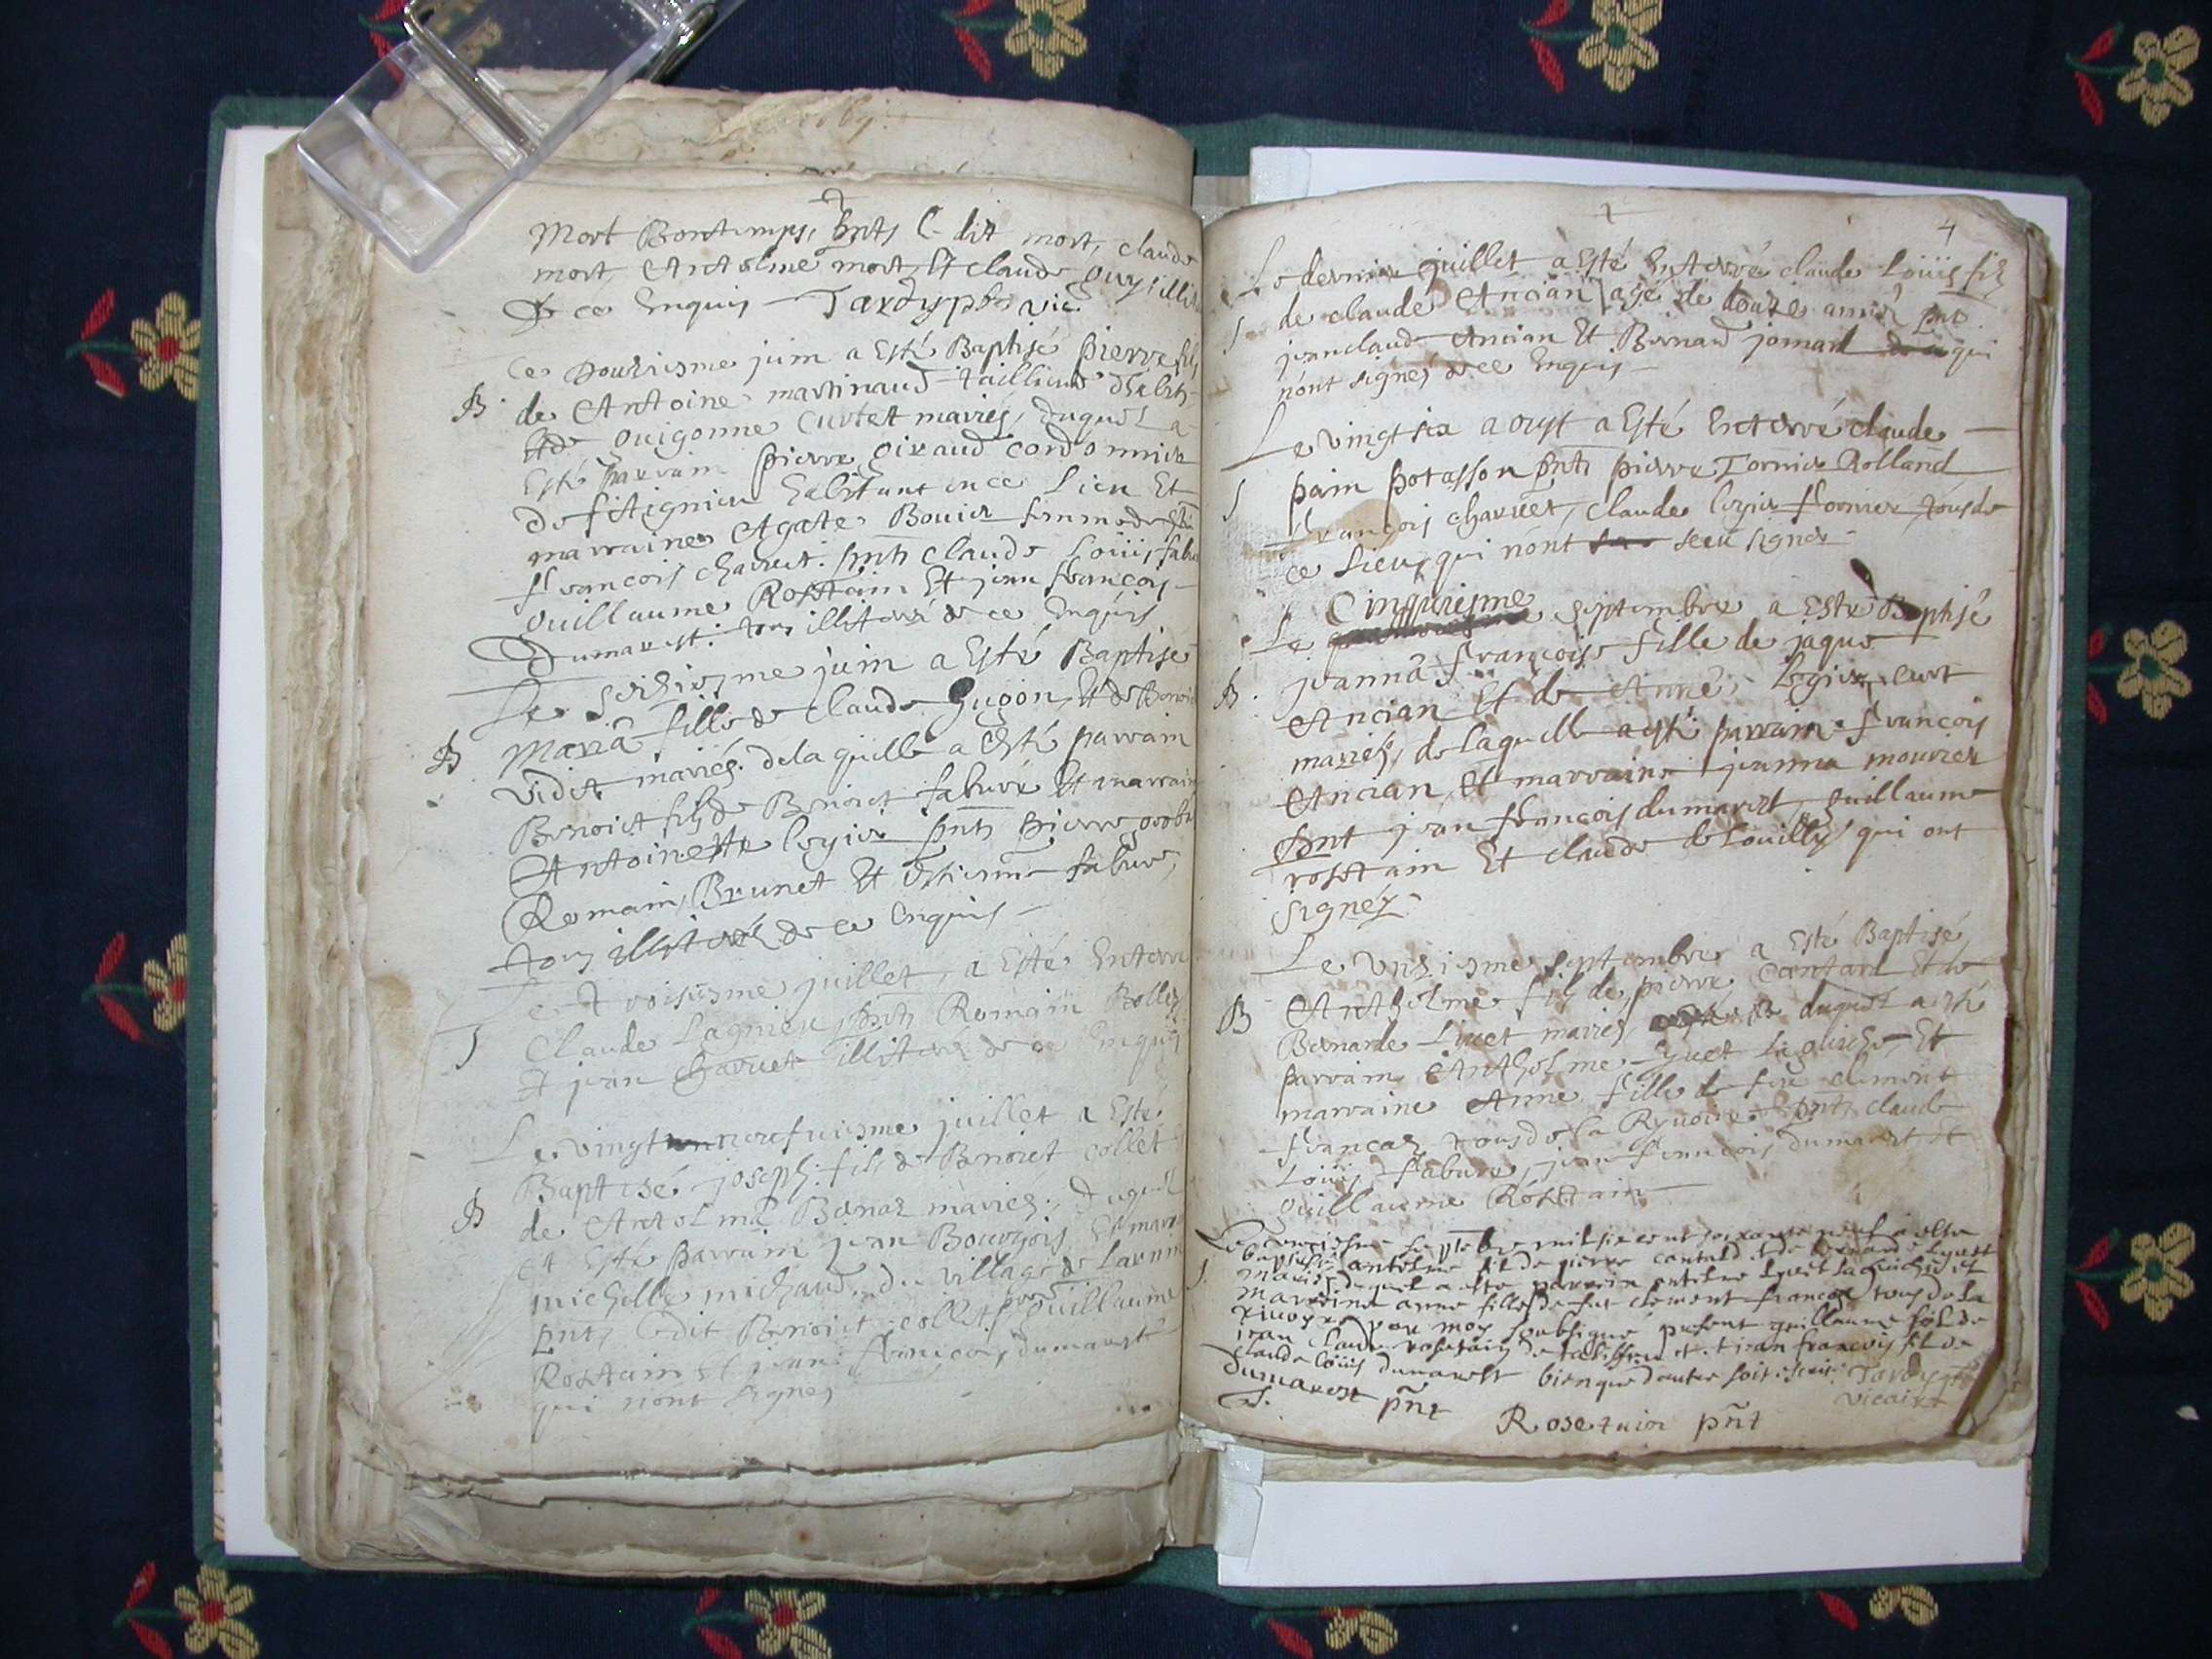 Mort Bontemps, pnts Le dit mort, claude
mort, Antolme mort, Et claude guy illit
De ce Enquis Tardy pbr vic
Le Douziesme juin a Esté Baptisé pierre fils
B
de Antoine martinand tailleur
Et de guigonne Curtet mariés, duquel a
Esté parrain pierre giraud cordonnier
de habitant en ce Lieu Et
marraine Agate Bouier femme de
françois charvet. pnts claude Loüis fabure
guillaume Rosttain Et jean françois
Dumarest. tous illiterés de ce Enquis
Le seiziesme juin a Esté Baptisé
B
Maria fille de claude gugon, Et de Benoiste
vidit mariés. de la quelle a Esté parrain
Benoict fils de Benoict fabure Et marraine
Antoinette legier pnts pierre
Romain, Brunet Et Estienne fabure,
tous illiterés de ce Enquis
Le troisiesme juillet, a Esté Enterré
S
Claude Lagnieu pnts Romain Bollez
Et jean Charvet illiterés de ce Enquis
Le vingt neufuiesme juillet a Esté
Baptisé joseph. fils de Benoict collet
B
de Antolma Bernaz mariés. duquel
a Esté parrain jean Bourgois Et marr
michelle michaud du village de Larnin
pnts Ledit Benoict collet guillaume
Rosttain Et jean françois dumarest
qui nont signes
4
Le dernier juillet a Esté Enterré claude Loüis fils
S
de claude Ancian agé de douze années pnt
jean claude Ancian Et Bernard jomard qui
nont signés de ce Enquis
Le vingt six aoust a Esté Enterré claude
S
pain potasson pnts pierre Tornier Rolland
françois charuet, claude legier fornier, tous de
ce Lieu, qui nont sceu signer
Cinquiesme
Le septembre a Esté Baptisé
B
jeanna françoise fille de jaque
Ancian Et de Anne Legier, curt
mariés, de laquelle a esté parrain françois
Ancian, Et marraine jeanna mourier
pnt jean françois dumarest, guillaume
rosttain Et claude de Louilly qui ont
signéz
Le unziesme septembre a Esté Baptisé
B
Antholme fils de pierre Cantard Et de
Bernarde Liuet mariés duquel a esté
parrain Antholme Lyuet Et
marraine Anne fille de feu clement
francoz tous de la Ryuoire pnts claude
Loüis fabure, jean françois dumarest Et
guillaume Rosttain
Le unziesme septebre mil six cent soixante neuf a este
baptisé antolme fil de pierre cantard et de bernarde lyuet
S.
mariés duquel a este parrein antolme lyuet et
marreine anne fille de fut clement francoz tous de la
riuoyre par moy soubsigné present guillaume fil de
jean claude rosetain de et jean francois fil de
claude loüis dumarest bien que dautre soit escrit Tardy
vicaire
Dumarest pñt
Rosetain pñt